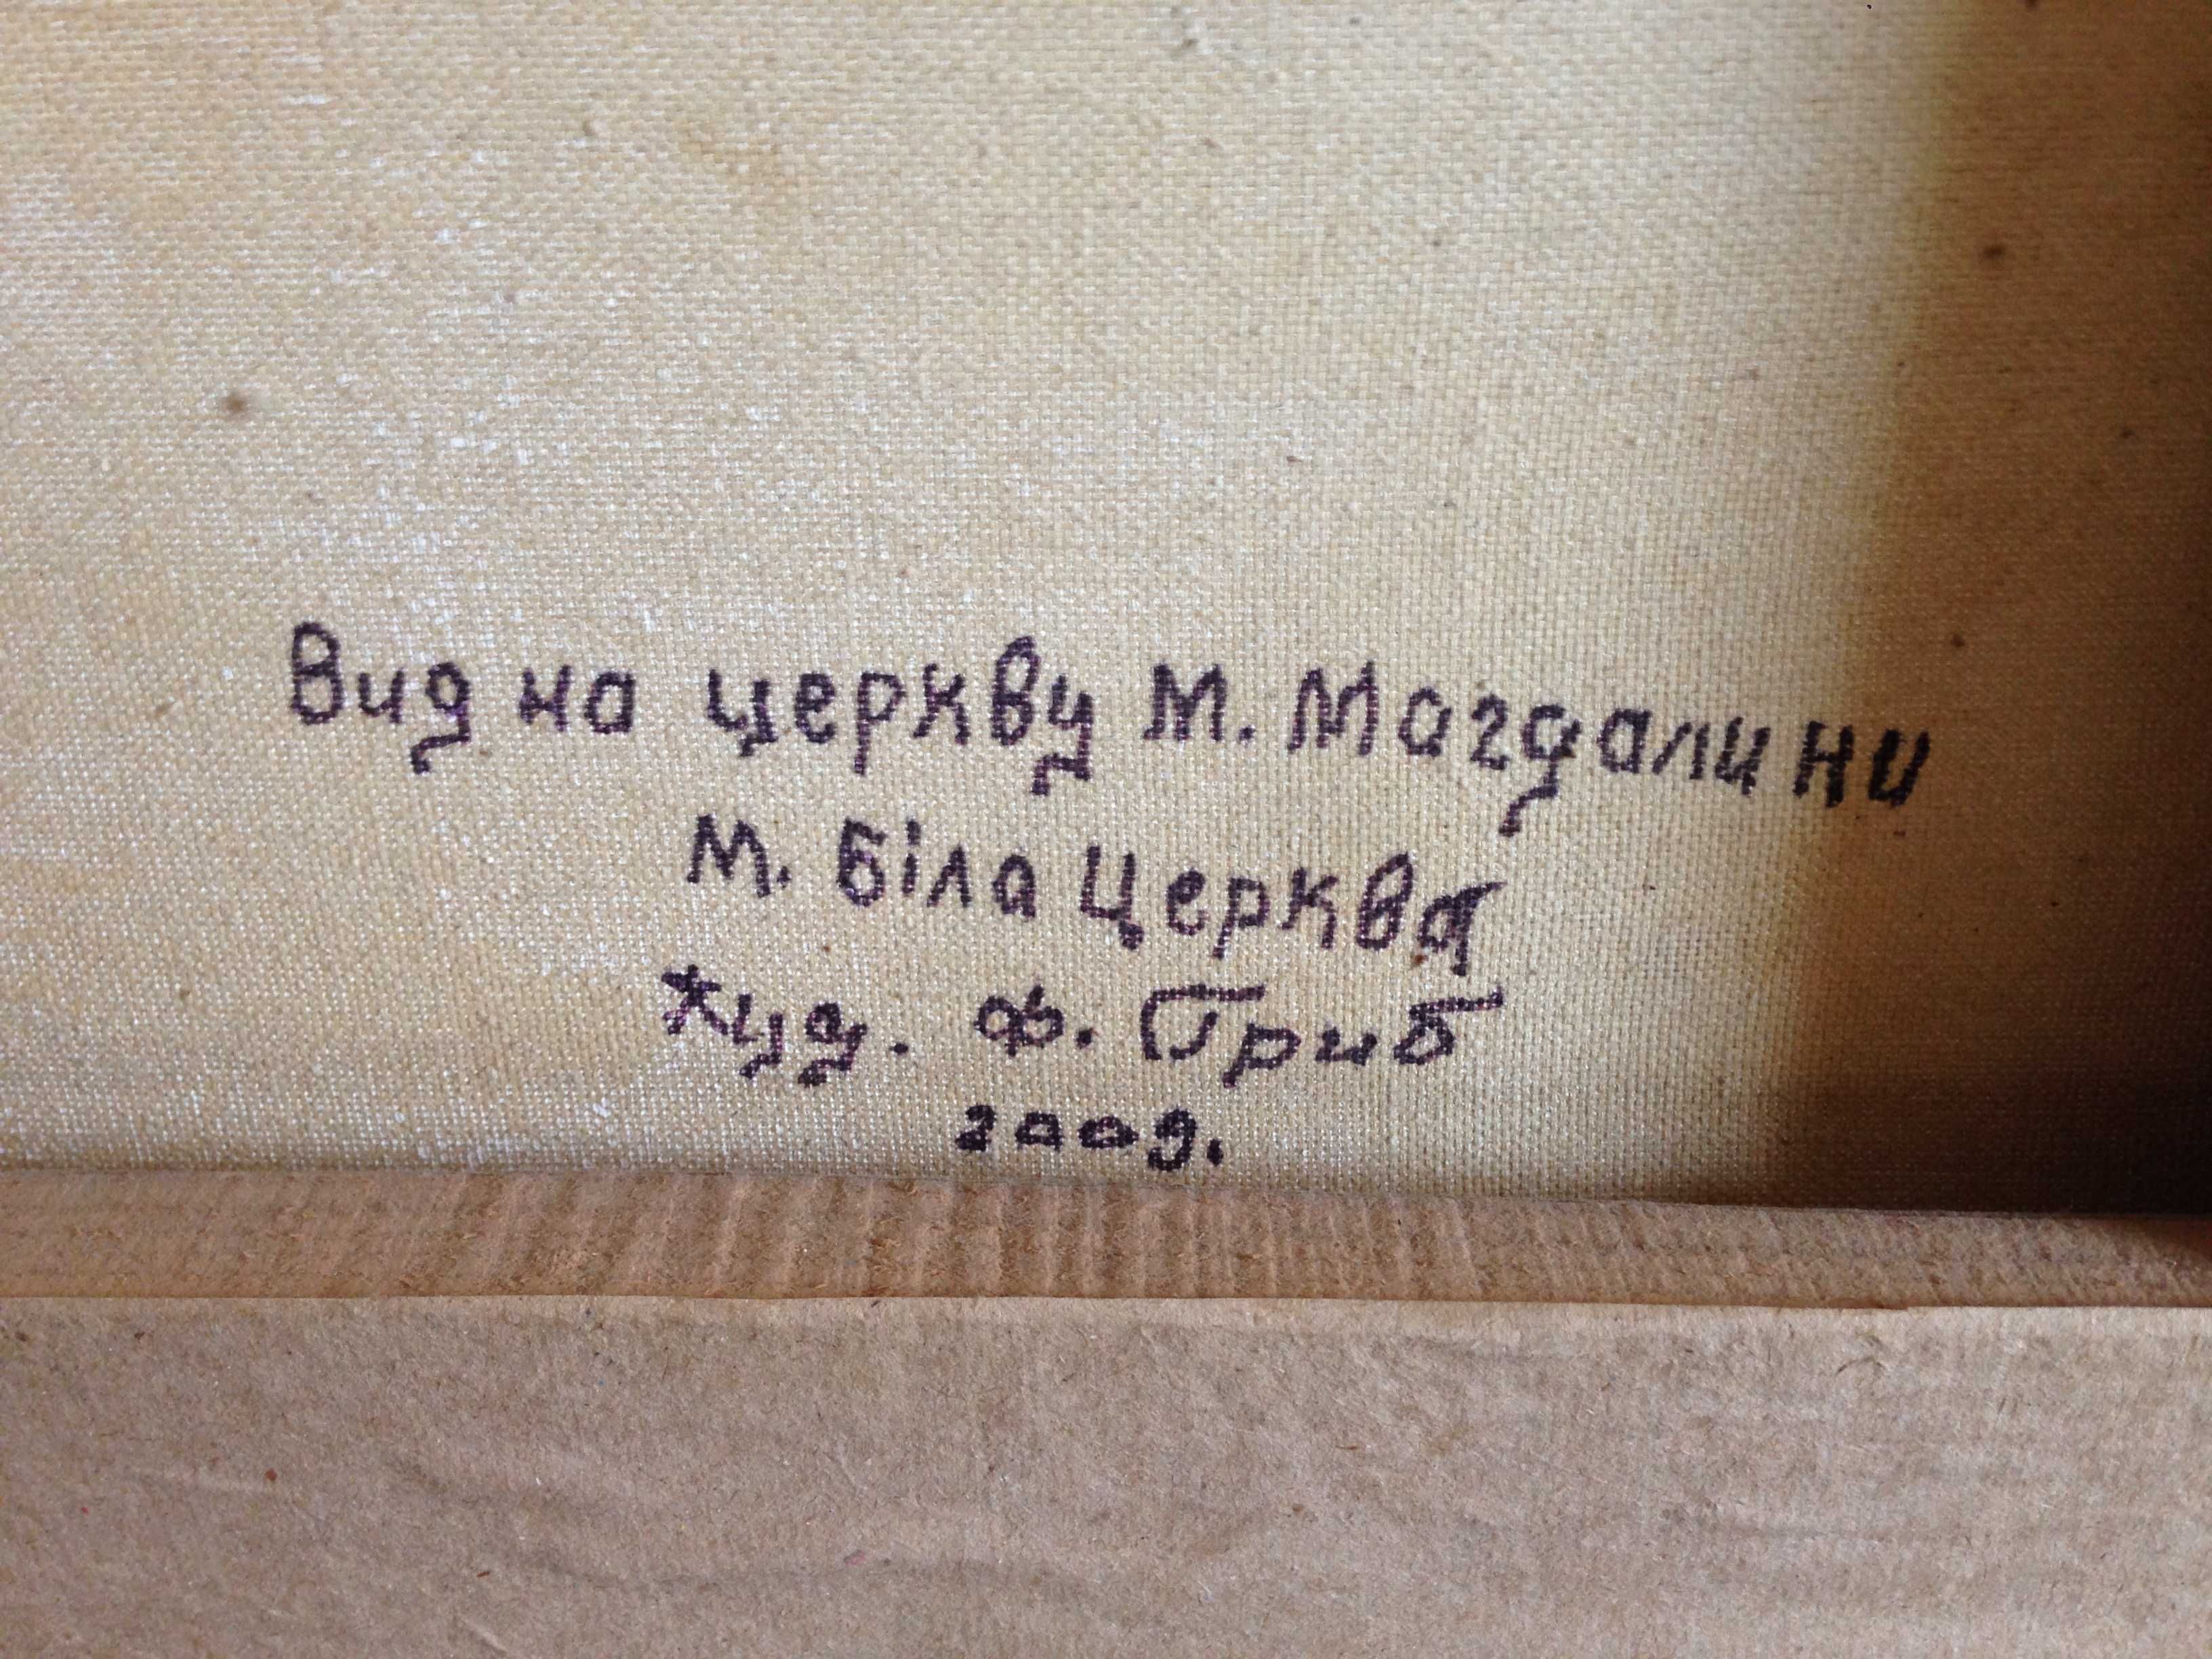 Вид на церкву М. Магдалини
М. Біла Церква
худ. Ф. Гриб
2009.